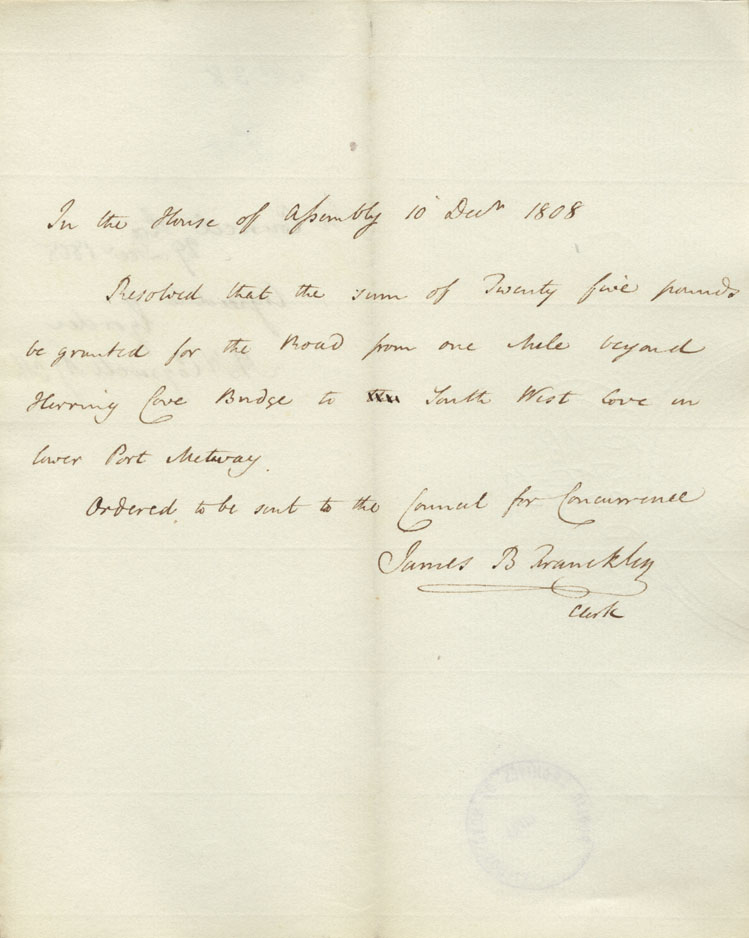 In the House of Assembly 10 Decr 1808
Resolved that the sum of Twenty five pounds
be granted for the Road from one Mile beyond
Herring Cove Bridge to South West Cove in
lower Port Metway
Ordered to be sent to the Council for Concurrence
James B Franckley
Clerk